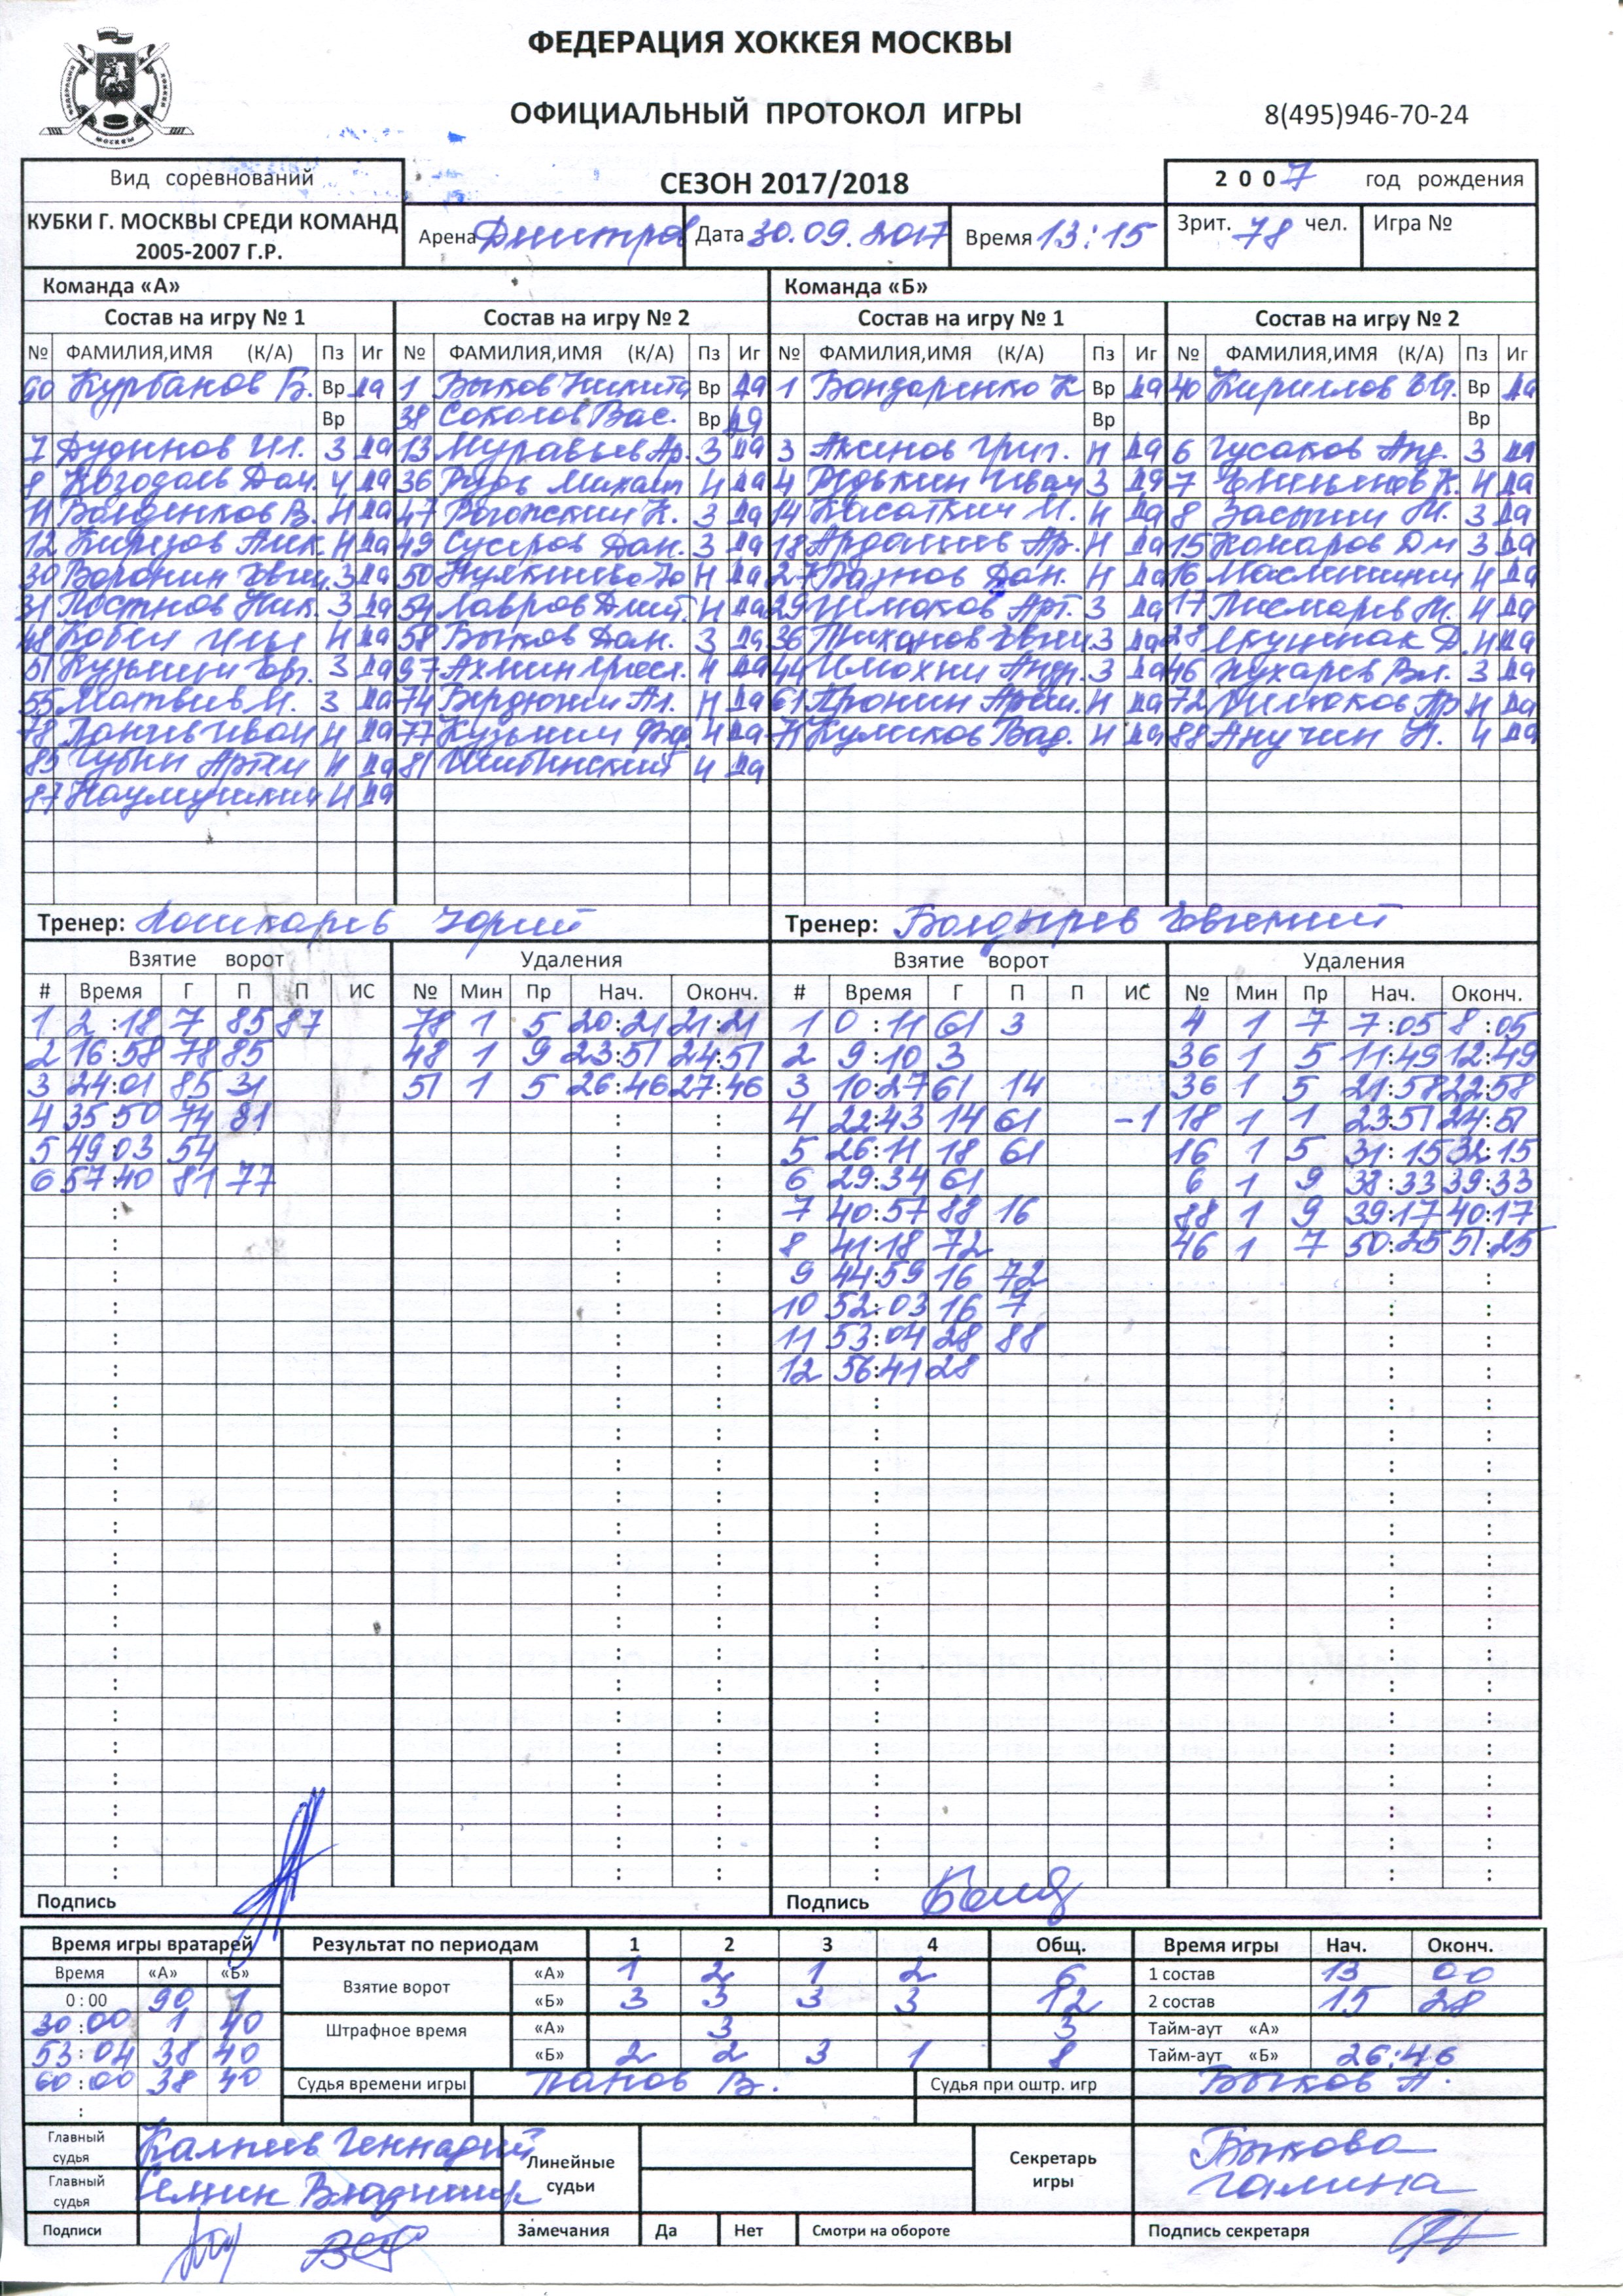 ФЕДЕРАЦИЯ ХОККЕЯ МОСКВЫ
ОФИЦИАЛЬНЫЙ ПРОТОКОЛ ИГРЫ 8(495)946-70-24
Вид соревнований СЕЗОН 2017/2018 2007 год рождения
КУБКИ Г. МОСКВЫ СРЕДИ КОМАНД 2005-2007 Г.Р. Арена Дмитров Дата 30.09.2017 Время 13:15 Зрит. 78 чел. Игра №
Команда «А» Команда «Б»
Состав на игру № 1 Состав на игру № 2 Состав на игру № 1 Состав на игру № 2
№ ФАМИЛИЯ,ИМЯ (К/А) Пз Иг № ФАМИЛИЯ,ИМЯ (К/А) Пз Иг № ФАМИЛИЯ,ИМЯ (К/А) Пз Иг № ФАМИЛИЯ,ИМЯ (К/А) Пз Иг
90 Курбанов Б. Вр да 1 Быков Никита Вр да 1 Бондаренко К Вр да 40 Кириллов Евг. Вр да
Вр 38 Соколов Вас. Вр да Вр Вр
7 З да 13 Муравьев Ар. З да 3 Аксенов Григ. Н да 6 Гусаков Анд. З да
8 Дан. Н да 36 Рудь Михаил Н да 4 Редькин Иван З да 7 К. Н да
11 В. Н да 47 Рогожский К. З да 14 Касаткин М. Н да 8 М. З да
12 Н да 49 Дан. З да 18 Ар. Н да 15 Комаров Дм З да
30 Воронин Евг. З да 50 Н да 27 Дан. Н да 16 Н да
31 Постнов Ник. З да 54 Лавров Дмит. Н да 29 Арт. З да 17 Писмарев М. Н да
48 Кобец Илья Н да 58 Быков Дан. З да 36 Тиханов Евген. З да 28 Д. Н да
51 Кузьмин З да 97 Н да 44 Андр. З да 46 Кухарев Вл. З да
55 Матвьев М. З да 74 Ал. Н да 61 Пронин Н да 72 Н да
78 Иван Н да 77 Кузьмин Н да 71 Куликов Вад. Н да 88 Анучин Н да
85 Губин Артем Н да 81 Шибинский Н да
87 Наумушкин Н да
Тренер: Юрий Тренер: Болдырев Евгений
Взятие ворот Удаления Взятие ворот Удаления
# Время Г П П ИС № Мин Пр Нач. Оконч. # Время Г П П ИС № Мин Пр Нач. Оконч.
1 2:18 7 85 87 78 1 5 20:21 21:21 1 0:11 61 3 4 1 7 7:05 8:05
2 16:58 78 85 48 1 9 23:51 24:51 2 9:10 3 36 1 5 11:49 12:49
3 24:01 85 31 51 1 5 26:46 27:46 3 10:27 61 14 36 1 5 21:58 22:58
4 35:50 74 81 4 22:43 14 61 -1 18 1 1 23:51 24:51
5 49:03 54 5 26:11 18 61 16 1 5 31:15 32:15
6 57:40 81 77 6 29:34 61 6 1 9 38:33 39:33
7 40:57 88 16 88 1 9 39:17 40:17
8 41:18 72 46 1 7 50:25 51:25
9 44:59 16 72
10 52:03 16 7
11 53:04 28 88
12 56:41 28
Подпись Подпись
Время игры вратарей Результат по периодам 1 2 3 4 Общ. Время игры Нач. Оконч.
Время «А» «Б» Взятие ворот «А» 1 2 1 2 6 1 состав 13 00
0:00 90 1 «Б» 3 3 3 3 12 2 состав 15 28
30:00 1 40 Штрафное время «А» 3 3 Тайм-аут «А»
53:04 38 40 «Б» 2 2 3 1 8 Тайм-аут «Б» 26:46
60:00 38 40 Судья времени игры Панов В. Судья при оштр. игр Быков А.
Главный судья Калпиев Геннадий Линейные судьи Секретарь игры Быкова Галина
Главный судья Семин Владимир
Подписи Замечания Да Нет Смотри на обороте Подпись секретаря